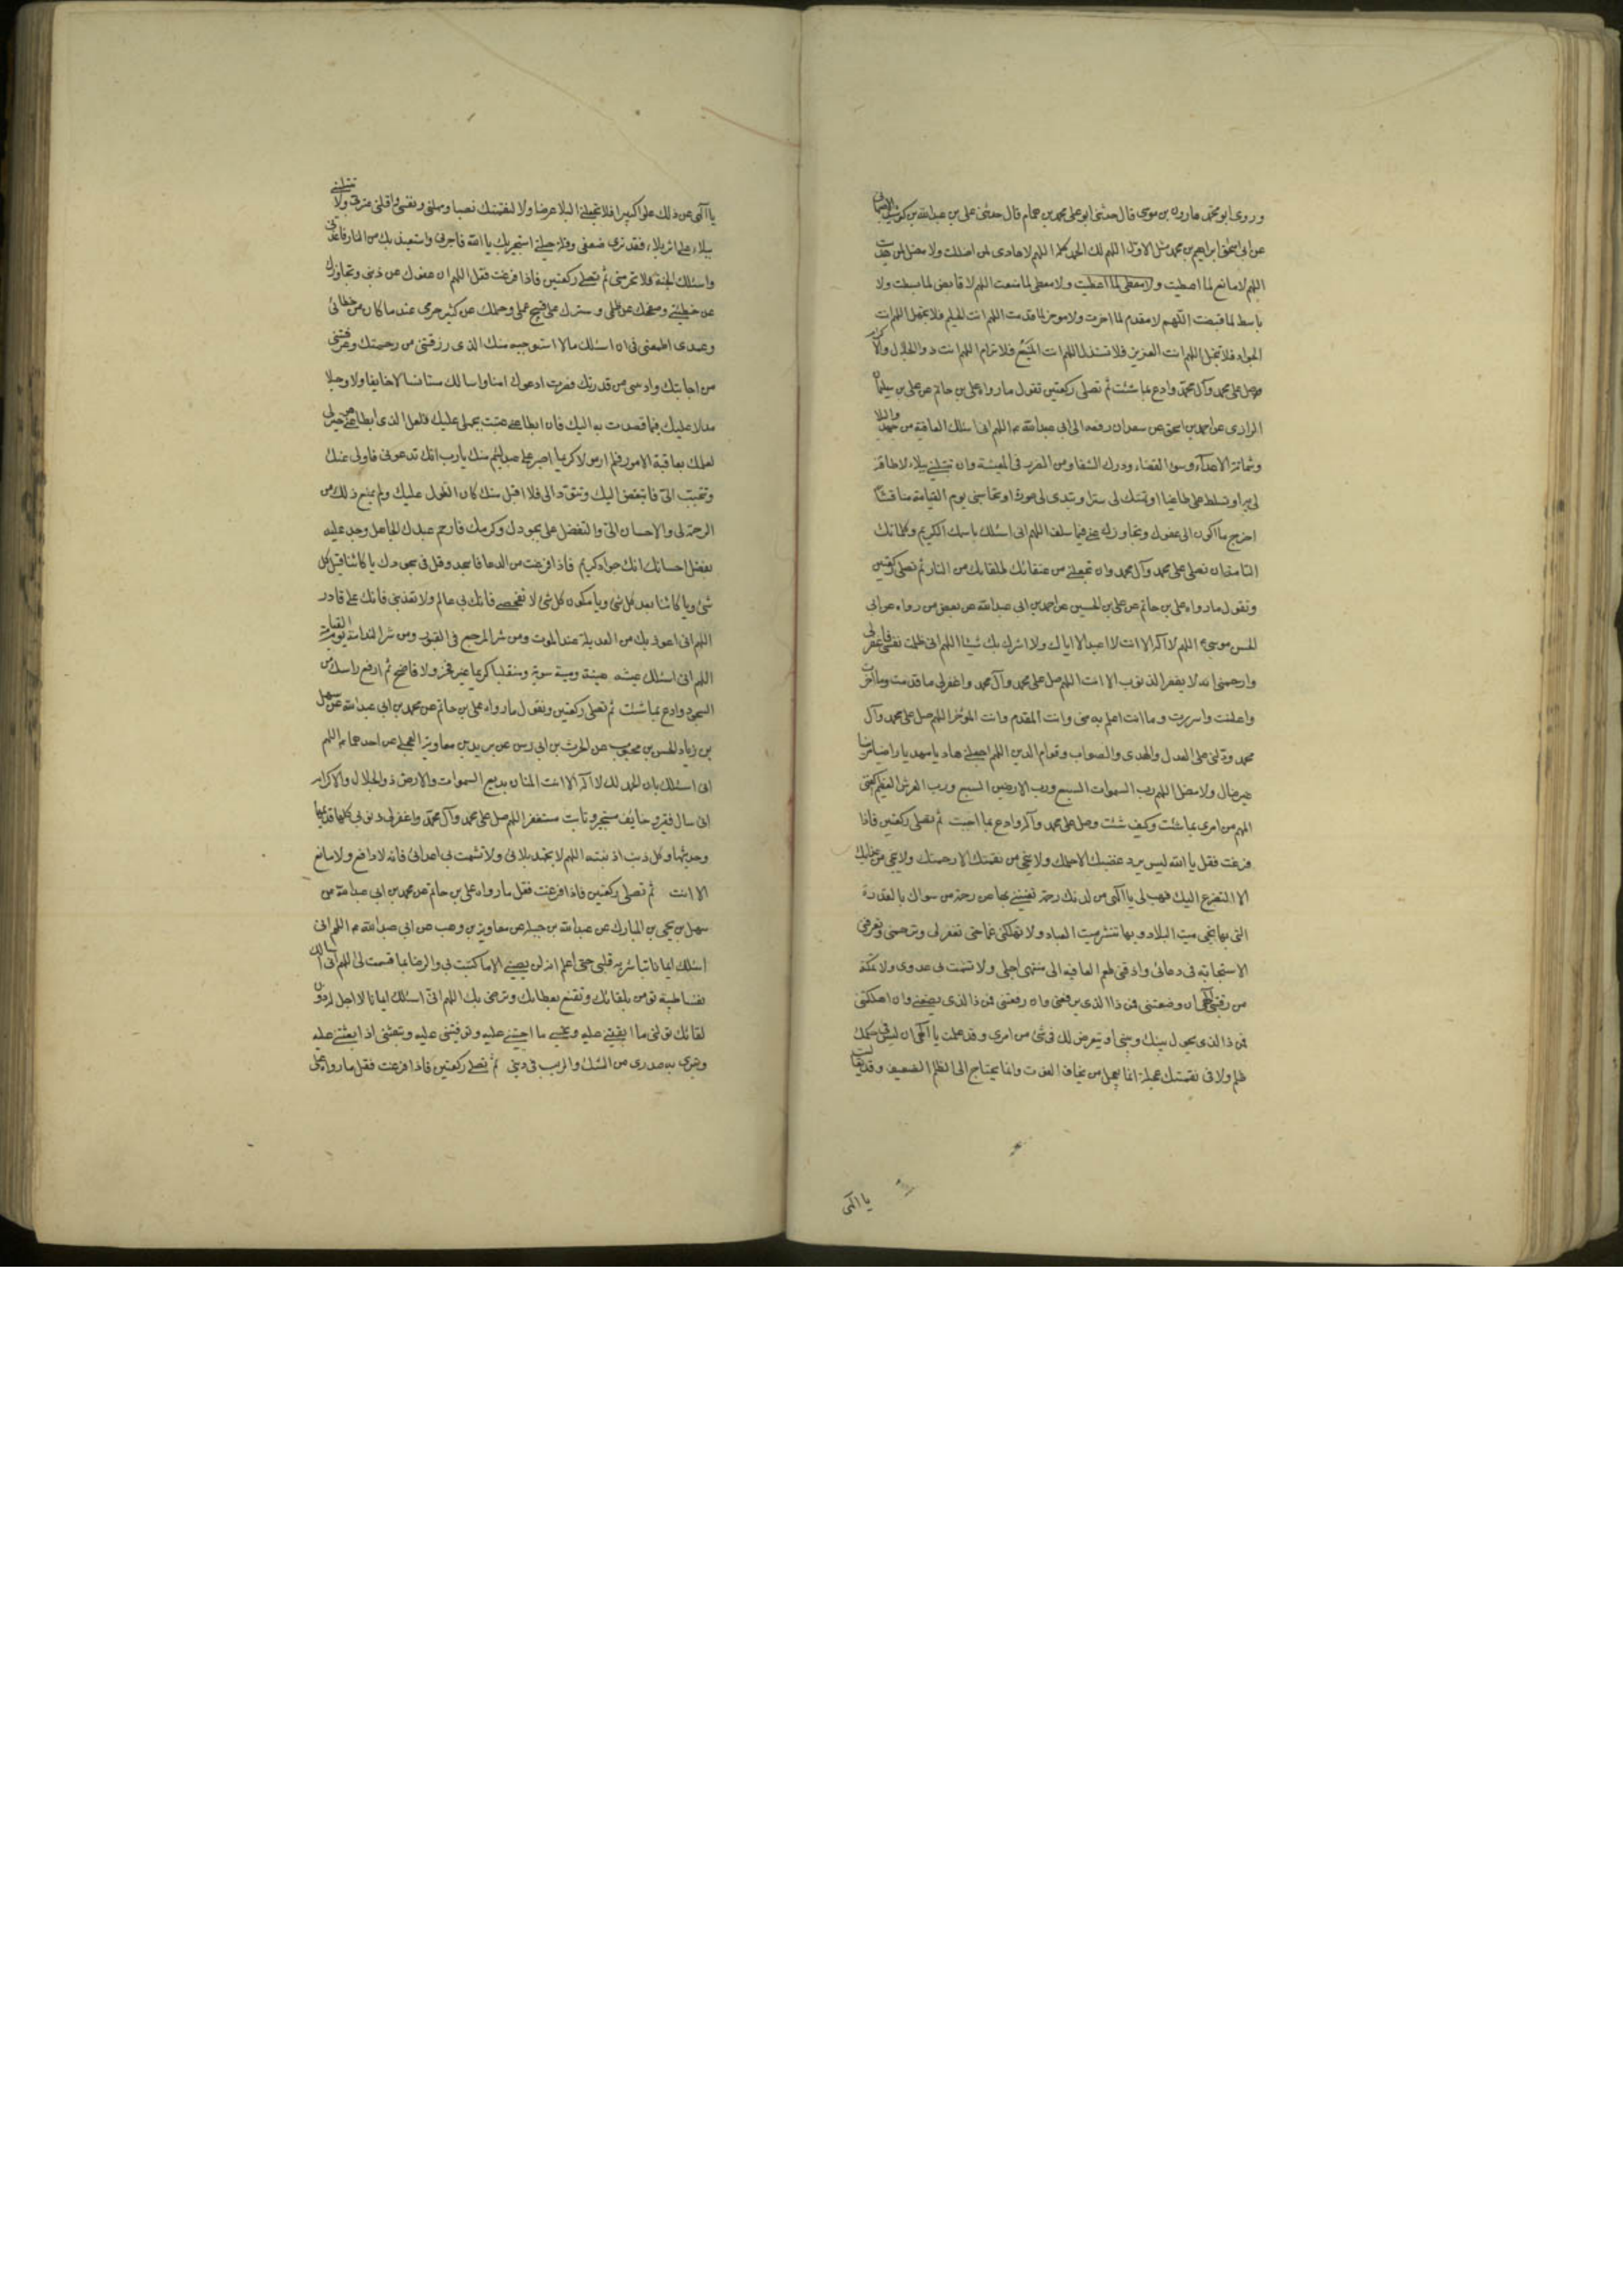 وروى ابو محمد هارون بن موسى قال حدثنى ابو على محمد بن همام قال حدثنى على بن عبدالله بن
عن ابى اسحق ابراهيم بن محمد مثل الاول اللهم لك الحمد كله اللهم لا هادى لمن اضللت ولا مضل لمن هديت
اللهم لا مانع لما اعطيت ولا معطى لما اعطيت ولا معطى لما منعت اللهم لا قابض لما بسطت ولا
باسط لما قبضت اللهم لا مقدم لما اخرت ولا موخر لما قدمت اللهم انت الحليم فلا تجهل اللهم انت
الجواد فلا تبخل اللهم انت العزيز فلا تستذل اللهم انت المنيع فلا ترام اللهم انت ذو الجلال والاكرام
وصل على محمد وآل محمد وادع بما شئت ثم تصلى ركعتين تقول ما رواه على بن حاتم عن على بن سليمان
الزرارى عن احمد بن اسحق عن سعدان رفعه الى ابى عبدالله ع اللهم انى اسئلك العافية من جهد البلاء
وشماتة الاعداء وسوء القضاء ودرك الشقاء ومن الضرر فى المعيشة وان تبتلينى ببلاء لا طاقة
لى به او تسلط على طاغيا او تهتك لى سترا او تبدى لى عورة او تحاسبنى يوم القيامة مناقشا
احوج ما اكون الى عفوك وتجاوزك عنى فيما سلف اللهم انى اسئلك باسمك الكريم وكلماتك
التامة ان تصلى على محمد وآل محمد وان تجعلنى من عتقائك وطلقائك من النار ثم تصلى ركعتين
وتقول ما رواه على بن حاتم عن على بن الحسين عن احمد بن ابى عبدالله عن بعض من رواه عن ابى
الحسن موسى ع اللهم لا اله الا انت لا اعبد الا اياك ولا اشرك بك شيئا اللهم انى ظلمت نفسى فاغفر لى
وارحمنى انه لا يغفر الذنوب الا انت اللهم صل على محمد وآل محمد واغفر لى ما قدمت وما اخرت
واعلنت واسررت وما انت اعلم به منى وانت المقدم وانت الموخر اللهم صل على محمد وآل
محمد ودلنى على العدل والهدى والصواب وقوام الدين اللهم اجعلنى هاديا مهديا راضيا مرضيا
غير ضال ولا مضل اللهم رب السموات السبع ورب الارضين السبع ورب العرش العظيم اكفنى
المهم من امرى بما شئت وكيف شئت وصل على محمد وآله وادع بما احببت ثم تصلى ركعتين فاذا
فرغت فقل يا الله ليس يرد غضبك الا حلمك ولا ينجى من نقمتك الا رحمتك ولا ينجى من عذابك
الا التضرع اليك فهب لى يا الهى من لدنك رحمة تغنينى بها عن رحمة من سواك بالقدرة
التى بها تحيى ميت البلاد وبها تنشر ميت العباد ولا تهلكنى غما حتى تغفر لى وترحمنى وتعرفنى
الاستجابة فى دعائى واذقنى طعم العافيه الى منتهى اجلى ولا تشمت بى عدوى ولا تمكنه
من رقبتى الهى ان وضعتنى فمن ذا الذى يرفعنى وان رفعتنى فمن ذا الذى يضعنى وان اهلكتنى
فمن ذا الذى يحول بينك وبينى او يتعرض لك فى شئ من امرى وقد علمت يا الهى ان ليس فى حكمك
ظلم ولا فى نقمتك عجلة انما يعجل من يخاف الفوت وانما يحتاج الى الظلم الضعيف وقد تعاليت
يا الهى
يا الهى عن ذلك علوا كبيرا فلا تجعلنى للبلاء غرضا ولا لنقمتك نصبا ومهلنى ونفسنى واقلنى عثرتى ولا تتبعنى
ببلاء على اثر بلاء فقد ترى ضعفى وقلة حيلتى استجير بك يا الله فاجرنى واستعيذ بك من النار فاعذنى
واسئلك الجنة فلا تحرمنى ثم تصلى ركعتين فاذا فرغت فقل اللهم ان عفوك عن ذنبى وتجاوزك
عن خطيئتى وصفحك عن ظلمى وسترك على قبيح عملى وحلمك عن كثير جرمى عند ما كان من خطائى
وعمدى اطمعنى فى ان اسئلك ما لا استوجبه منك الذى رزقتنى من رحمتك وعرفتنى
من اجابتك وارسى من قدرتك فصرت ادعوك امنا واسالك مستانسا لا خايفا ولا وجلا
مدلا عليك فيما قصدت به اليك فان ابطا عنى عتبت بجهلى عليك ولعل الذى ابطا عنى هو خير لى
لعلمك بعاقبة الامور فلم ار مولا كريما اصبر على عبد لئيم منك يا رب انك تدعونى فاولى عنك
وتتحبب الى فاتبغض اليك وتتودد الى فلا اقبل منك كان التطول عليك ولم يمنع ذلك من
الرحمة لى والاحسان الى والتفضل على بجودك وكرمك فارحم عبدك الجاهل وجد عليه
بفضل احسانك انك جواد كريم فاذا فرغت من الدعا فاسجد وقل فى سجودك يا كائنا قبل كل
شئ ويا كائنا بعد كل شئ ويا مكون كل شئ لا تفضحنى فانك بى عالم ولا تعذبنى فانك على قادر
اللهم انى اعوذ بك من العديلة عند الموت ومن شر المرجع فى القبور ومن شر الندامة يوم القيامة
اللهم انى اسئلك عيشة هنيئة وميتة سوية ومنقلبا كريما غير مخز ولا فاضح ثم ارفع راسك من
السجود وادع بما شئت ثم تصلى ركعتين وتقول ما رواه على بن حاتم عن محمد بن ابى عبدالله عن سهل
بن زياد الحسن بن محبوب عن الحرث بن ابى رسن عن بريد بن معاوية العجلى عن احدهما ع اللهم
انى اسئلك بان الحمد لك لا اله الا انت المنان بديع السموات والارض ذو الجلال والاكرام
انى سائل فقير وخايف مستجير وتائب مستغفر اللهم صل على محمد وآل محمد واغفر لى ذنوبى كلها قديمها
وحديثها وكل ذنب اذنبته اللهم لا تجهد بلائى ولا تشمت بى اعدائى فانه لا دافع ولا مانع
الا انت ثم تصلى ركعتين فاذا فرغت فقل ما رواه على بن حاتم عن محمد بن ابى عبدالله عن
سهل بن يحيى بن المبارك عن عبدالله بن جبلة عن معاوية بن وهب عن ابى عبدالله ع اللهم انى
اسئلك ايمانا تباشر به قلبى حتى اعلم انه لن يصيبنى الا ما كتبت لى والرضا بما قسمت لى اللهم انى اسالك
نفسا طيبة تومن بلقائك وتقنع بعطائك وترضى بك اللهم انى اسئلك ايمانا لا اجل له دون
لقائك تولنى ما ابقيتنى عليه وتحيينى ما احييتنى عليه وتوفنى عليه وتبعثنى اذا بعثتنى عليه
وتبرى به صدرى من الشك والريب فى دينى ثم تصلى ركعتين فاذا فرغت فقل ما رواه على